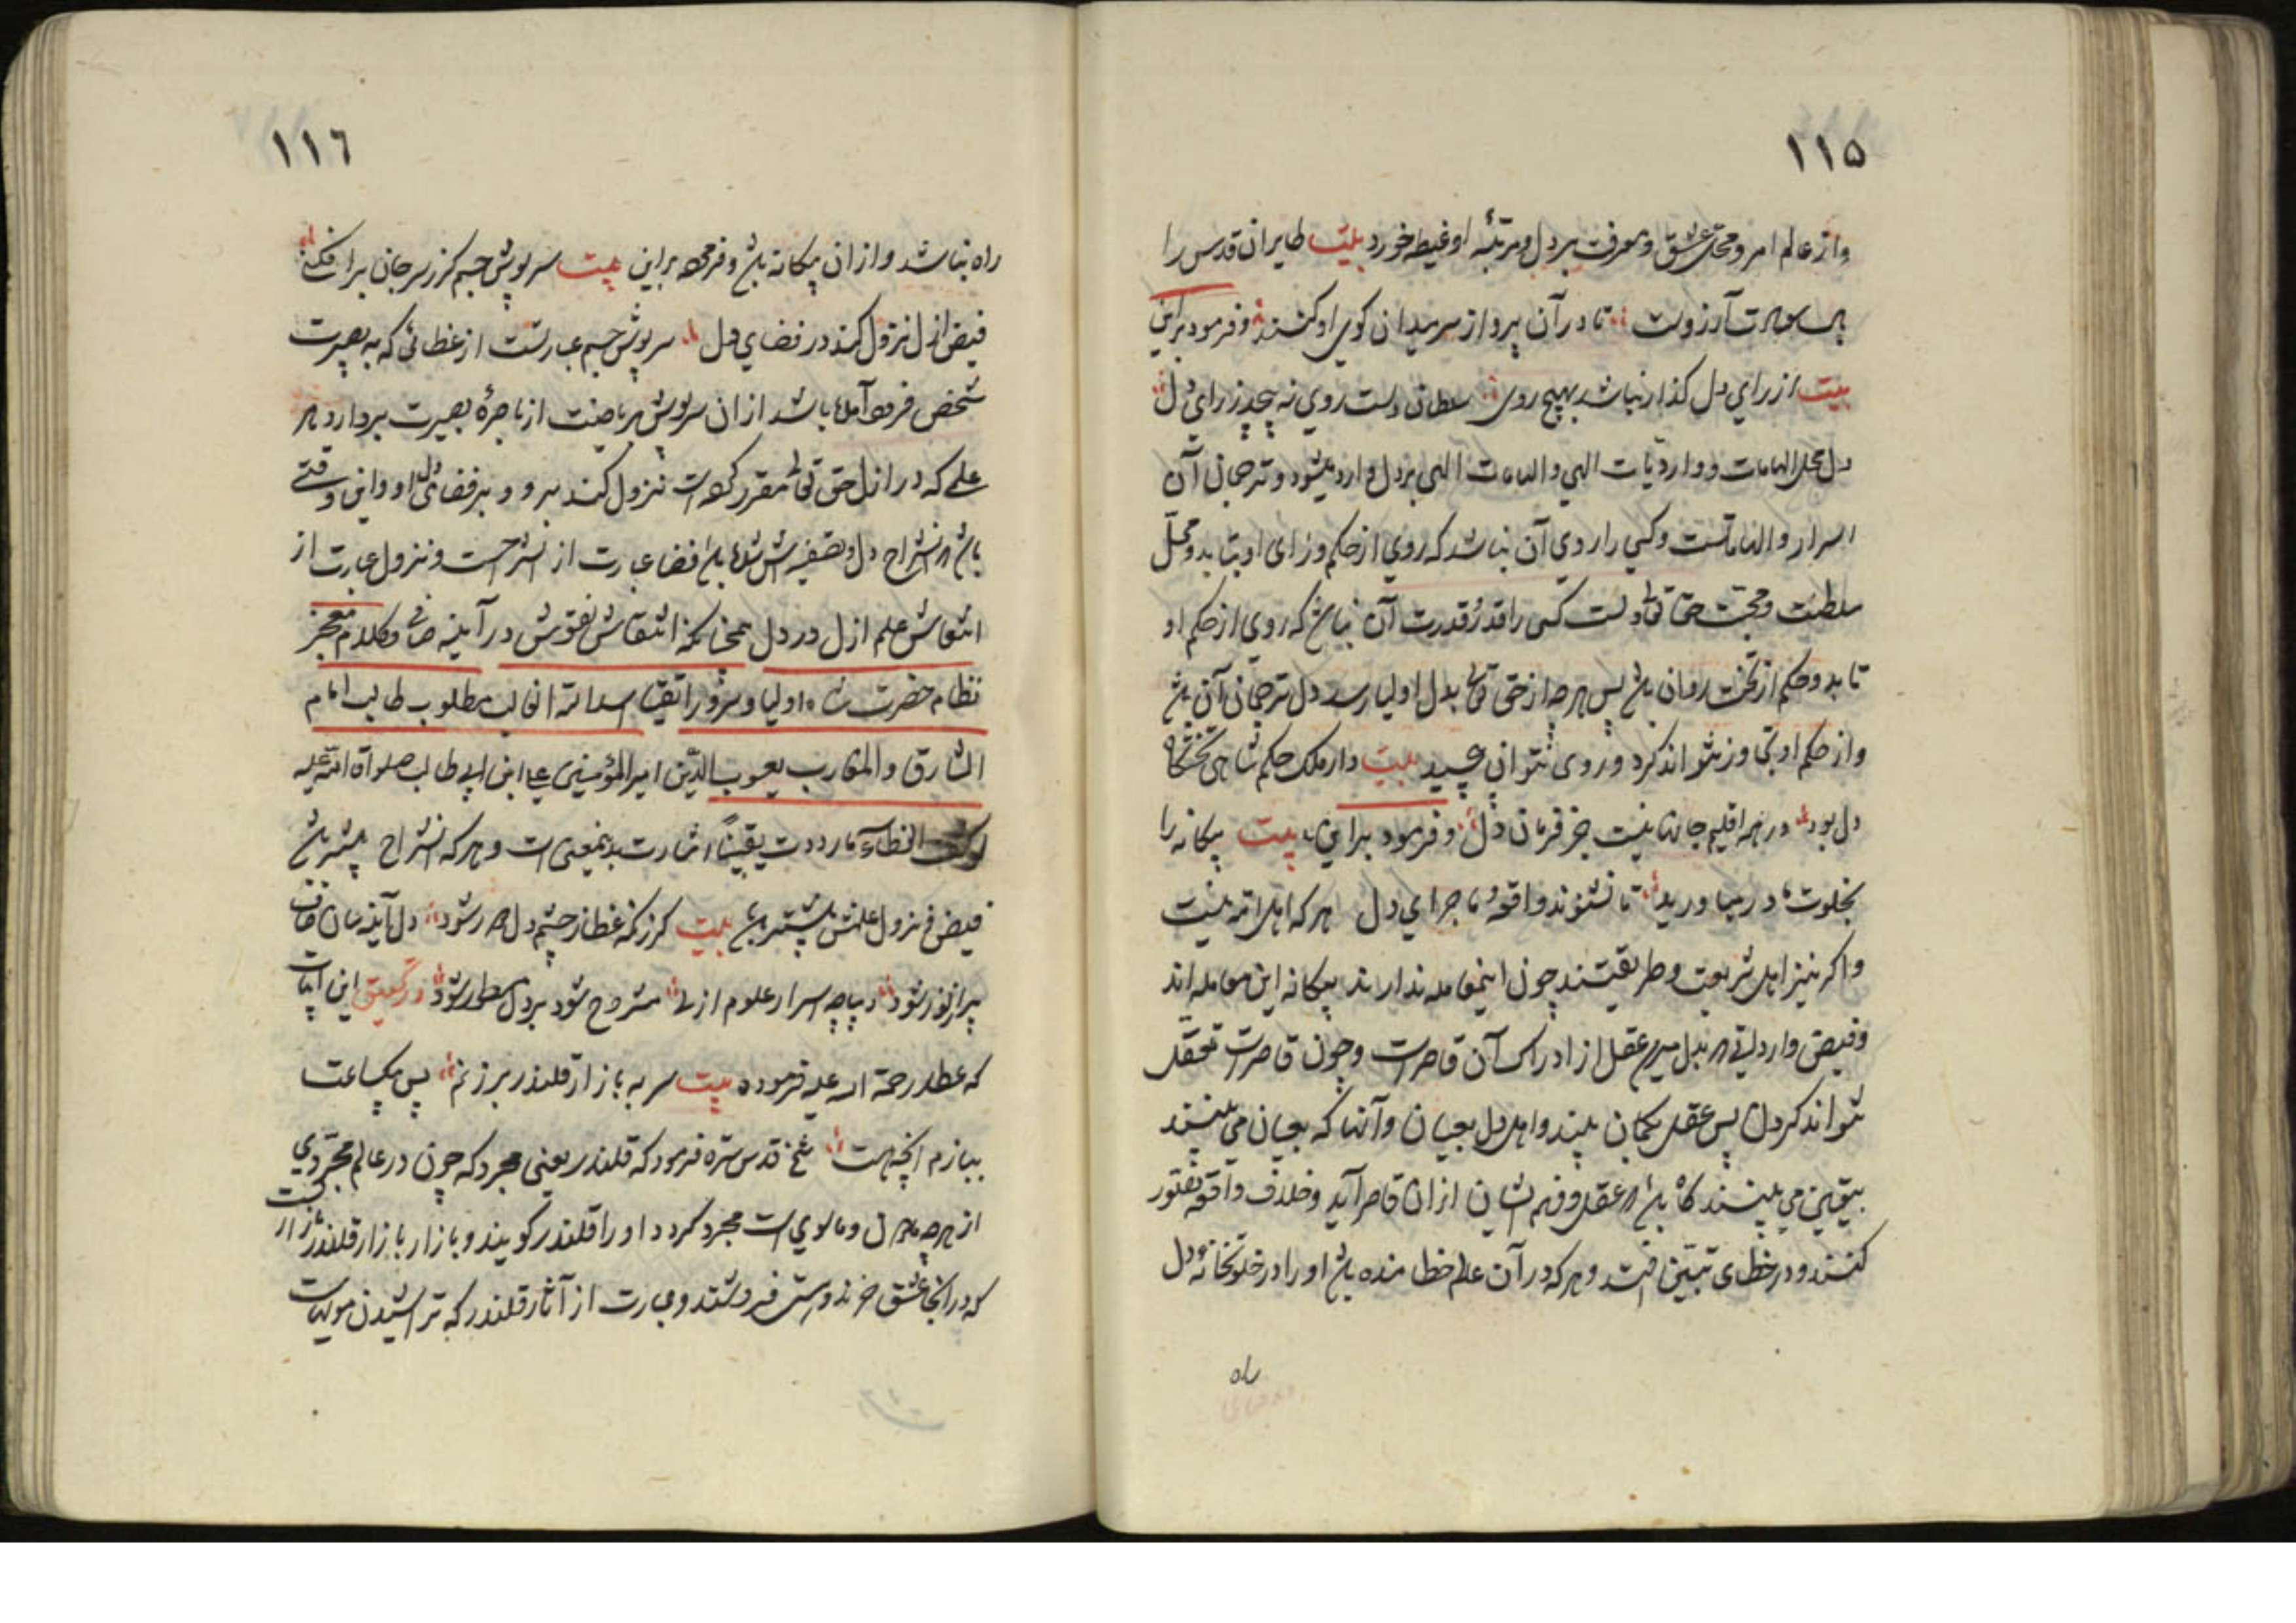 ۱۱۵
واز عالم امر ومحل عشق ومعرفت بر دل ومرتبهٔ او غبطه خورد بیت طایران قدس را
آرزوست تا در آن پرواز سر میدان کوی او کنند وفرمود براین
بیت از رای دل گذار نباشد بهیچ روی سلطان دلست روی نه پیچد ز رای دل
دل محل الهامات و واردیات الهی والهامات الهی بر دل وارد میشود وترجمان آن
اسرار والهاماتست وکسی را روی آن نباشد که روی از حکم و رای او بتابد ومحل
سلطنت ومحبت حق تعالی دلست کسی را قدرْ قدرت آن نباشد که روی از حکم او
تابد وحکم از تخت روان باشد پس هرچه از حق تعالی بدل اولیا رسد دل ترجمان آن باشد
واز حکم او تجاوز نتواند کرد وروی نتوان پیچید بیت دار ملک حکم شاهی تختگاه
دل بود در همه اقلیم جانها نیست جز فرمان دل وفرمود براین بیت بیکانه را
بخلوت ما در میاورید تا نشنوند واقعهٔ ماجرای دل هر که اهل الله نیست
واکر نیز اهل شریعت وطریقتند چون اینمعامله ندارند بیکانه این معامله اند
وفیض وارداتی که بدل میرسد عقل از ادراک آن قاصرست وچون قاصرست تعقل
نتواند کرد دل پس عقل بکمان بیند واهل دل بعیان وآنها که بعیان می بینند
بیقین می بینند کاه باشد که عقل وفهم ایشان از ان قاصر آید وخلاف واقعه تصور
کنند ودر خطای تبیین افتند وهر که در آن عالم خطا منده باشد او را در خلوتخانهٔ دل
راه
۱۱٦
راه نباشد واز ان بیکانه باشد وفرموده براین بیت سرپوش جسم کز سر جان بر افکنی
فیض ازل نزول کند در فضای دل سرپوش جسم عبارتست از غطائی که به بصیرت
شخص فروآمده باشد از ان سرپوش بریاضت از باصرهٔ بصیرت بردارد هر
علمی که در ازل حق تعالی مقرر کرده است نزول کند برو وبر فضای دل او واین وقتی
باشد که انشراح دل وتصفیه اش شده باشد فضا عبارت از انشراحست ونزول عبارت از
انتقاش علم ازل در دل همچنانکه انتقاش نقوش در آینه صافی وکلام معجز
نظام حضرت شاه اولیا وسرور اتقیا اسدالله الغالب مطلوب طالب امام
المشارق والمغارب یعسوب الدین امیر المؤمنین علی ابن ابی طالب صلواة الله علیه
لو کشف الغطاء ما ازددت یقیناً اشارت بدینمعنی است وهر که انشراح بیشتر باشد
فیض نزول علمش بیشتر باشد بیت کر زنکه غطا ز چشم دل دور شود دل آینه سان صاف
پر از نور شود دیباچه اسرار علوم ازلی مشروح شود بر دل مسطور شود در تحقیق این ابیات
که عطار رحمة الله علیه فرموده بیت سر به بازار قلندر برزنم پس بیکساعت
ببازم آنچه هست شیخ قدس سره فرمود که قلندر یعنی مجرد که چون در عالم مجردی
از هرچه مادون وماسوی است مجرد کردد او را قلندر کویند وبازار بازار قلندر بازاریست
که در آنجا عشق خرند وهستی فروشند وعبارت از آثار قلندر که تراشیدن مویهاست